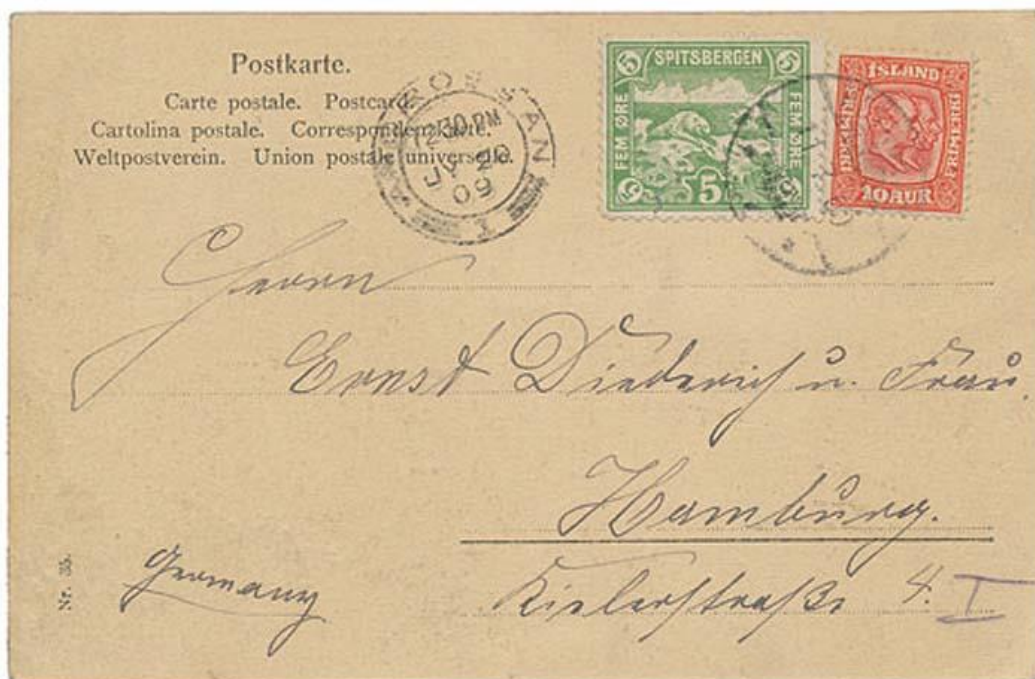 Postkarte.
Carte postale. Postcard.
Cartolina postale. Correspondenzkarte.
Weltpostverein. Union postale universelle.
12.30 PM
JY 20
09
1
5 SPITSBERGEN 5
FEM ØRE
FEM ØRE
5
ISLAND
FRIMERKI
10 AUR
Herrn
Ernst Diederich u. Frau.
Hamburg.
Germany
Kielerstraße 4. I
Nr. 35.